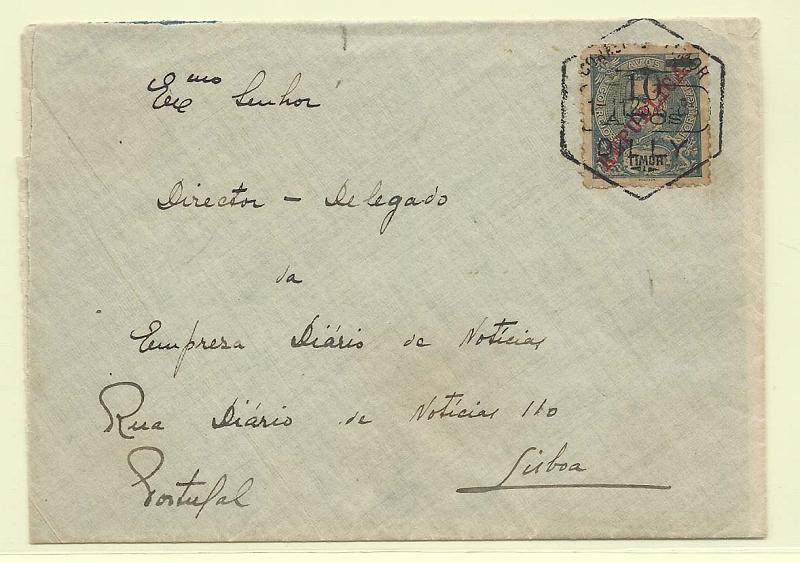 Exmo Senhor
Director - Delegado
da
Empreza Diário de Notícias
Rua Diário de Notícias 110
Lisboa
Portugal
10
AVOS
REPUBLICA
DILLY
TIMOR